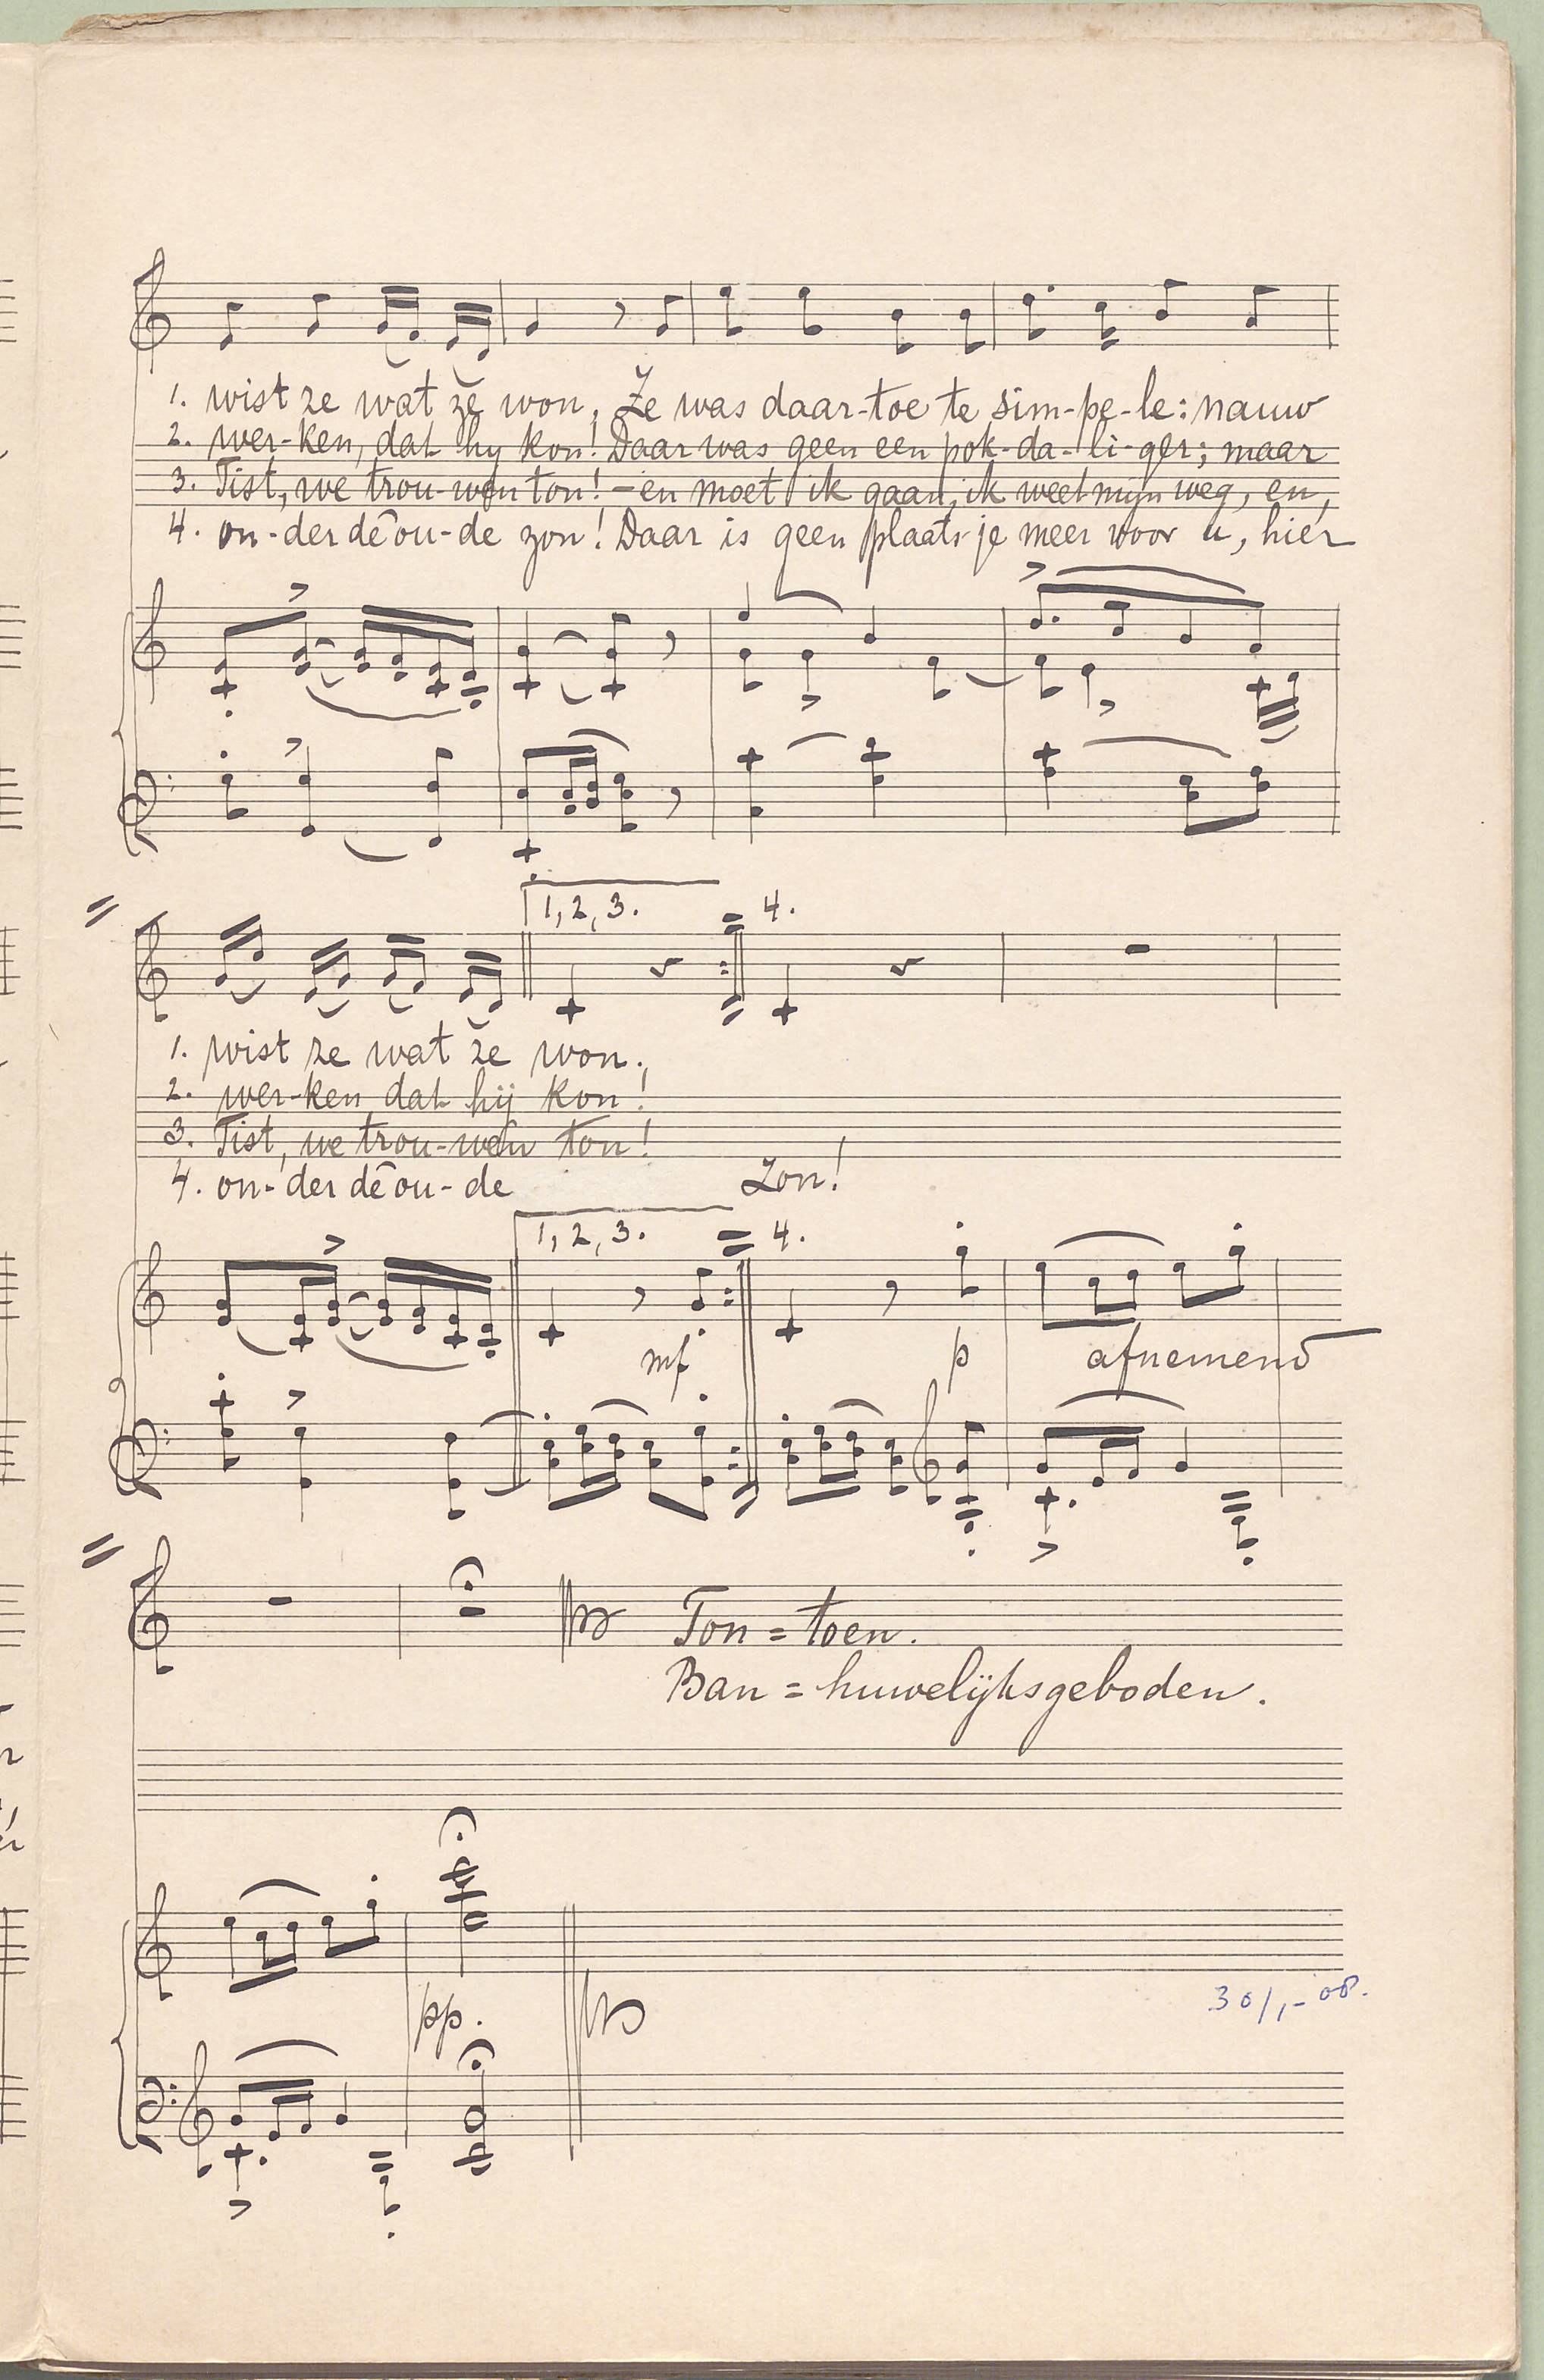 1. wist ze wat ze won, Ze was daar-toe te sim-pe-le: nauw
2. wer-ken, dat hy kon! Daar was geen een pok-da-li-ger; maar
3. Tist, we trou-wen ton! - en moet ik gaan, ik weet mijn weg, en,
4. on-der de ou-de zon! Daar is geen plaats je meer voor u, hier
1, 2, 3. 4.
1. wist ze wat ze won.,
2. wer-ken dat hij kon!
3. Tist, we trou-wen ton!
4. on-der de ou-de zon!
1, 2, 3. 4.
mf p afnemend
Ton = toen.
Ban = huwelijksgeboden.
pp.